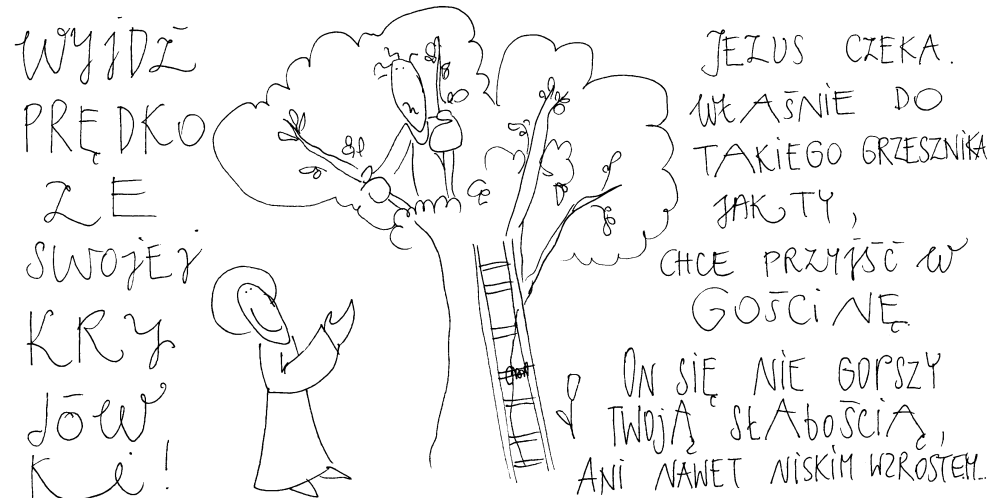 WYJDŹ
PRĘDKO
ZE
SWOJEJ
KRY
JÓW
KI!
JEZUS CZEKA.
WŁAŚNIE DO
TAKIEGO GRZESZNIKA
JAK TY,
CHCE PRZYJŚĆ W
GOŚCINĘ
ON SIĘ NIE GORSZY
TWOJĄ SŁABOŚCIĄ,
ANI NAWET NISKIM WZROSTEM...